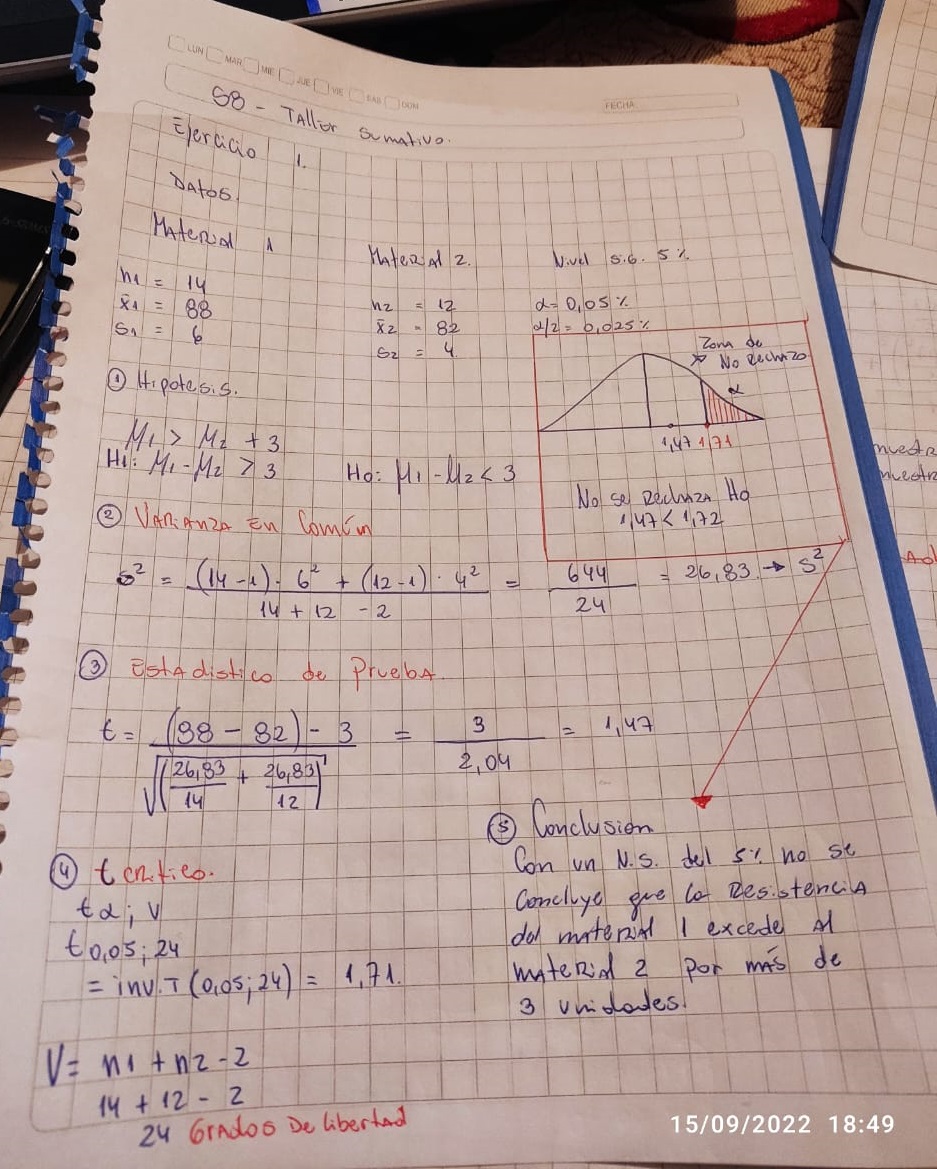 LUN MAR MIE JUE VIE SAB DOM
FECHA
S8 - Taller Sumativo.
Ejercicio 1.
Datos.
Material 1
n1 = 14
x̄1 = 88
S1 = 6
Material 2.
n2 = 12
x̄2 = 82
S2 = 4
Nivel S.G. 5%
α = 0,05%
α/2 = 0,025%
Zona de
No Rechazo
α
1,47 1,71
No se Rechaza Ho
1,47 < 1,72
① Hipotesis.
M1 > M2 + 3
H1: M1 - M2 > 3
Ho: M1 - M2 < 3
② Varianza en Común
S² = (14 - 1) · 6² + (12 - 1) · 4² / 14 + 12 - 2 = 644 / 24 = 26,83 → S²
③ Estadistico de Prueba
t = (88 - 82) - 3 / √(26,83/14 + 26,83/12) = 3 / 2,04 = 1,47
④ t critico.
tα; V
t0,05; 24
= inv.T (0,05; 24) = 1,71.
V = n1 + n2 - 2
14 + 12 - 2
24 Grados De libertad
⑤ Conclusion
Con un N.S. del 5% no se
Concluye que la Resistencia
del material 1 excede al
material 2 por más de
3 unidades.
nuestra
nuestra
15/09/2022 18:49